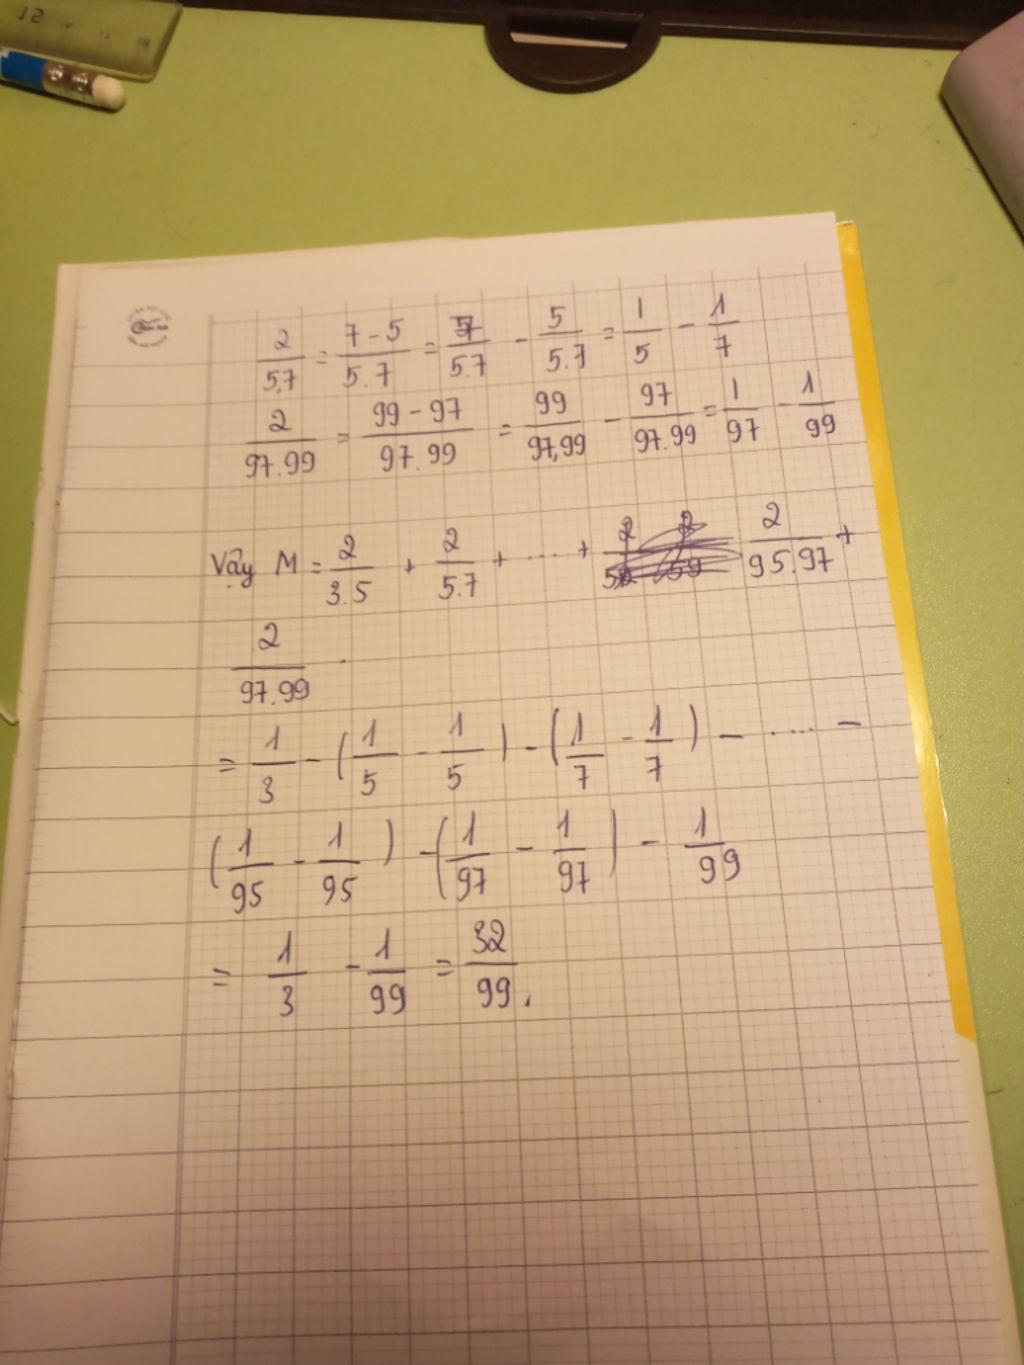 2/5.7 = 7-5/5.7 = 7/5.7 - 5/5.7 = 1/5 - 1/7
2/97.99 = 99-97/97.99 = 99/97,99 - 97/97.99 = 1/97 - 1/99
Vậy M = 2/3.5 + 2/5.7 + .... + 2/95.97 +
2/97.99 .
= 1/3 - (1/5 - 1/5) - (1/7 - 1/7) - .... -
(1/95 - 1/95) - (1/97 - 1/97) - 1/99
= 1/3 - 1/99 = 32/99.